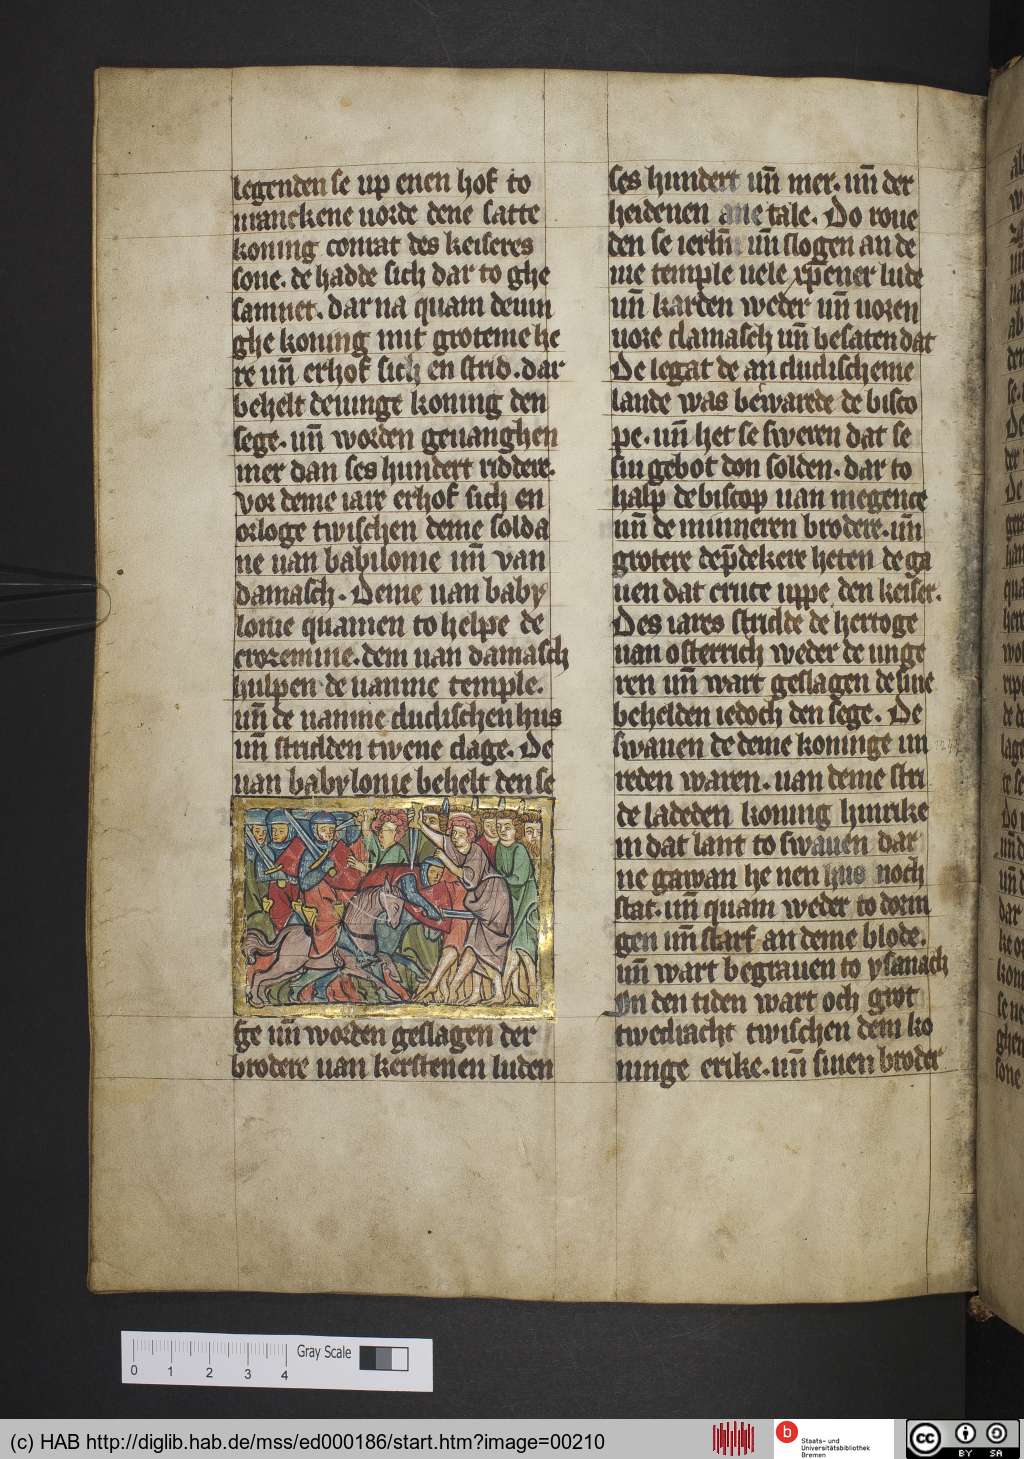 legenden se up enen hof to
vranckene vorde dene satte
koning conrat des keiseres
sone. de hadde sich dar to ghe
samnet. dar na quam de iun
ghe koning mit groteme he
re uñ erhof sich en strid. dar
behelt de iunge koning den
sege. uñ worden geuanghen
mer dan ses hundert riddere.
Vor deme iare erhof sich en
orloge twischen deme solda
ne uan babilonie uñ van
damasch. Deme uan baby
lonie quamen to helpe de
dem uan damasch
hulpen de uanme temple.
uñ de uanme dudischen hus
uñ stridden twene dage. De
uan babylonie behelt den se
ge uñ worden geslagen der
brodere uan kerstenen luden
ses hundert uñ mer. uñ der
heidenen ane tale. Do roue
den se ierlm̄ uñ slogen an de
me temple uele xp̄ener lude
uñ karden weder uñ uoren
uore damasch uñ besaten dat
De legat de an dudischeme
lande was bewarede de bisco
pe. uñ het se sweren dat se
sin gebot don solden. dar to
halp de biscop uan megence
uñ de minneren brodere. uñ
grotere dep̄dekere heten de ga
uen dat cruce uppe den keiser.
Des iares stridde de hertoge
uan osterrich weder de unge
ren uñ wart geslagen de sine
behelden iedoch den sege. De
swauen de deme koninge un
reden waren. uan deme stri
de ladeden koning hinrike
in dat lant to swauen dar
ne gawan he nen hus noch
stat. uñ quam weder to dorin
gen uñ starf an deme blode.
uñ wart begrauen to ysanach
In den tiden wart och grot
twedracht twischen dem ko
ninge erike. uñ sinen broder
0 1 2 3 4
Gray Scale
(c) HAB http://diglib.hab.de/mss/ed000186/start.htm?image=00210
b
Staats- und
Universitätsbibliothek
Bremen
cc
BY SA